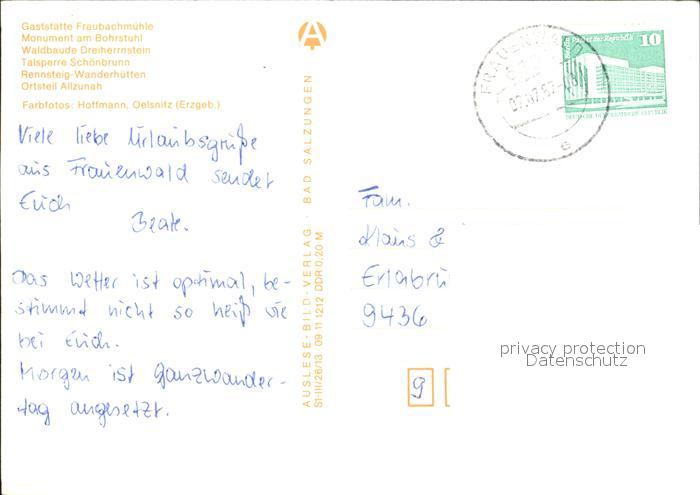 Gaststätte Fraubachmühle
Monument am Bohrstuhl
Waldbaude Dreiherrnstein
Talsperre Schönbrunn
Rennsteig-Wanderhütten
Ortsteil Allzunah
Farbfotos: Hoffmann, Oelsnitz (Erzgeb.)
Viele liebe Urlaubsgrüße
aus Frauenwald sendet
Euch
Beate.
Das Wetter ist optimal, be-
stimmt nicht so heiß wie
bei Euch.
Morgen ist Ganzwander-
tag angesetzt.
AUSLESE-BILD-VERLAG · BAD SALZUNGEN
St-III/26/13 09 11 1212 DDR 0,20 M
FRAUENWALD
e
Palast der Republik 10
DEUTSCHE DEMOKRATISCHE REPUBLIK
Fam.
Klaus &
Erlabru
9436
9
privacy protection
Datenschutz